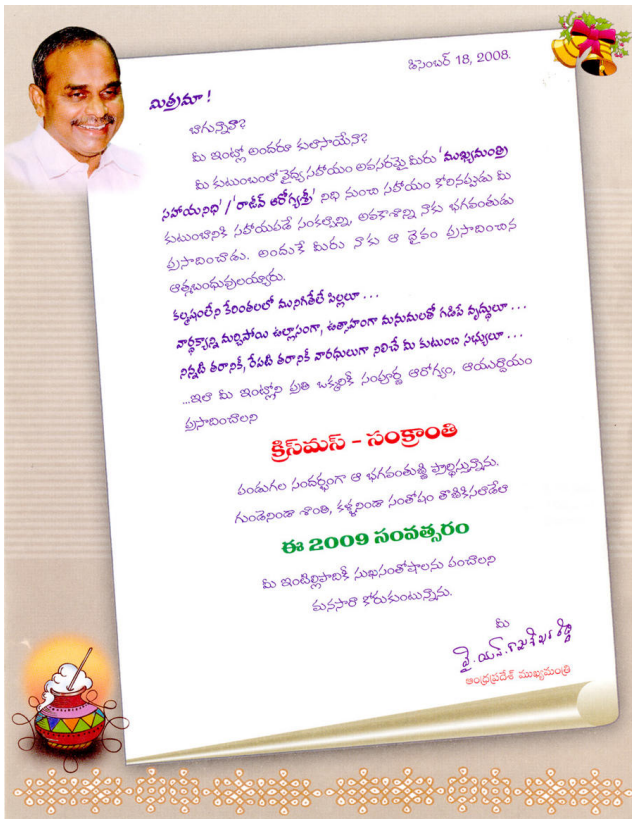 డిసెంబర్ 18, 2008.
మిత్రమా !
బాగున్నావా?
మీ ఇంట్లో అందరూ కులాసాయేనా?
మీ కుటుంబంలో వైద్య సహాయం అవసరమై మీరు 'ముఖ్యమంత్రి
సహాయనిధి' / 'రాజీవ్ ఆరోగ్యశ్రీ' నిధి నుంచి సహాయం కోరినప్పుడు మీ
కుటుంబానికి సహాయపడే సంకల్పాన్ని, అవకాశాన్ని నాకు భగవంతుడు
ప్రసాదించాడు. అందుకే మీరు నాకు ఆ దైవం ప్రసాదించిన
ఆత్మబంధువులయ్యారు.
కల్మషంలేని కేరింతలలో మునిగితేలే పిల్లలూ . . .
వార్ధక్యాన్ని మర్చిపోయి ఉల్లాసంగా, ఉత్సాహంగా మనుమలతో గడిపే వృద్ధులూ . . .
నిన్నటి తరానికీ, రేపటి తరానికీ వారధులుగా నిలిచే మీ కుటుంబ సభ్యులూ . . .
...ఇలా మీ ఇంట్లోని ప్రతి ఒక్కరికీ సంపూర్ణ ఆరోగ్యం, ఆయుర్దాయం
ప్రసాదించాలని
క్రిస్‌మస్ - సంక్రాంతి
పండుగల సందర్భంగా ఆ భగవంతుణ్ణి ప్రార్థిస్తున్నాను.
గుండెనిండా శాంతి, కళ్ళనిండా సంతోషం తొణికిసలాడేలా
ఈ 2009 సంవత్సరం
మీ ఇంటిల్లిపాదికీ సుఖసంతోషాలను పంచాలని
మనసారా కోరుకుంటున్నాను.
మీ
వై.యస్.రాజశేఖర రెడ్డి
ఆంధ్రప్రదేశ్ ముఖ్యమంత్రి